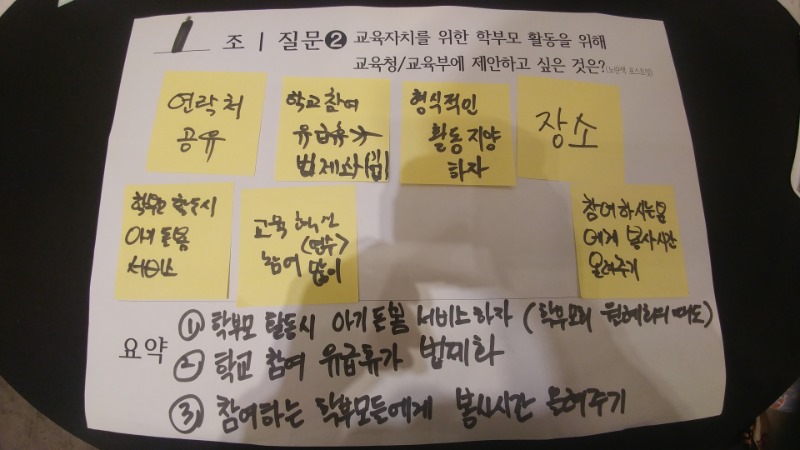 조 | 질문❷ 교육자치를 위한 학부모 활동을 위해
교육청/교육부에 제안하고 싶은 것은?(노란색 포스트잇)
연락처
공유
학교참여
유급휴가
형식적인
활동 지양
하자
장소
학부모 활동시
아기 돌봄
서비스
교육 혁신
(연수)
참여 많이
참여하시는분
에게 봉사시간
올려주기
요약
① 학부모 활동시 아기 돈봄 서비스하자 (학부모회
② 학교 참여 유급휴가 법제화
③ 참여하는 학부모들에게 봉사시간 올려주기